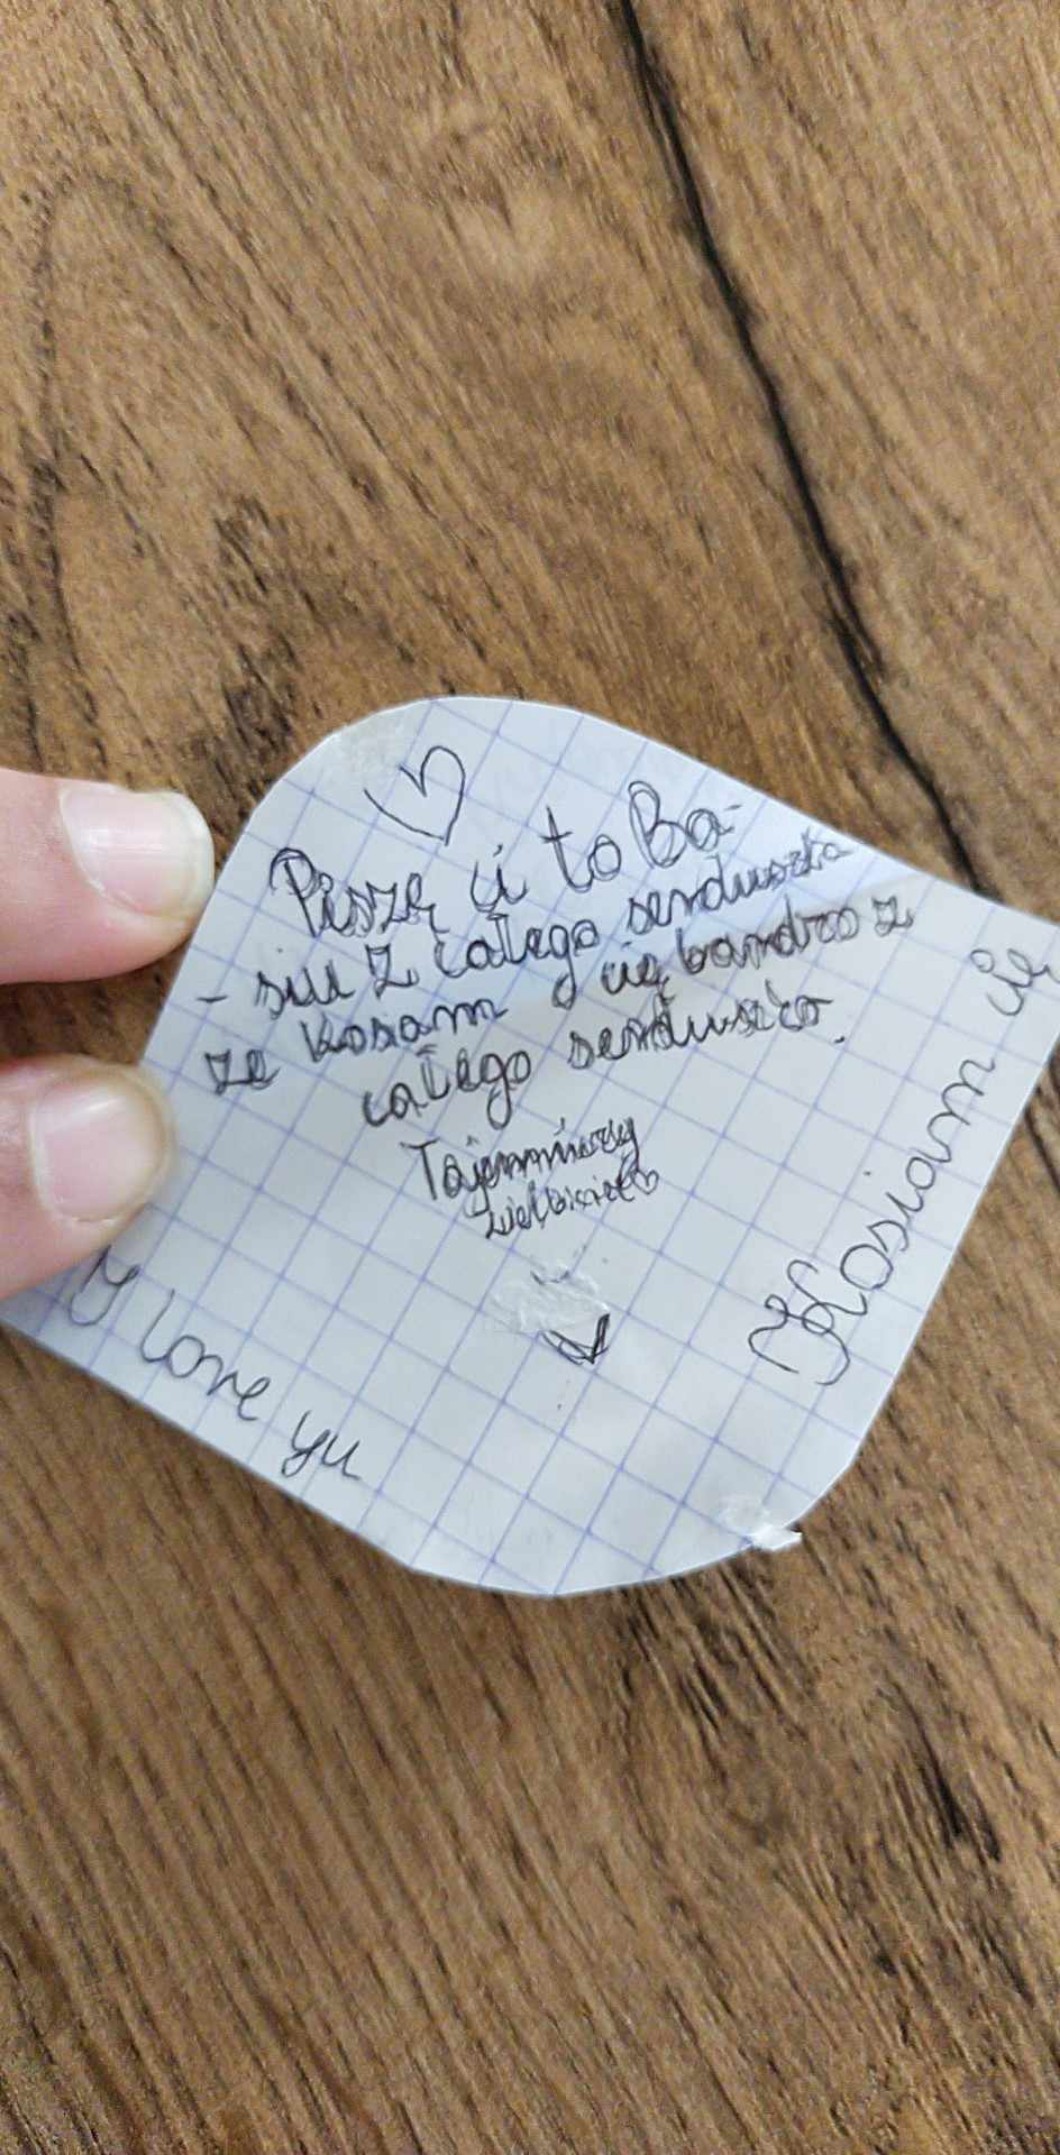 Piszę ci to Ba-
- siu z całego serduszka
że kosiam cię bardzo z
całego serduszka.
Tajemniczy
wielbiciel
I love yu
Kosiam cię